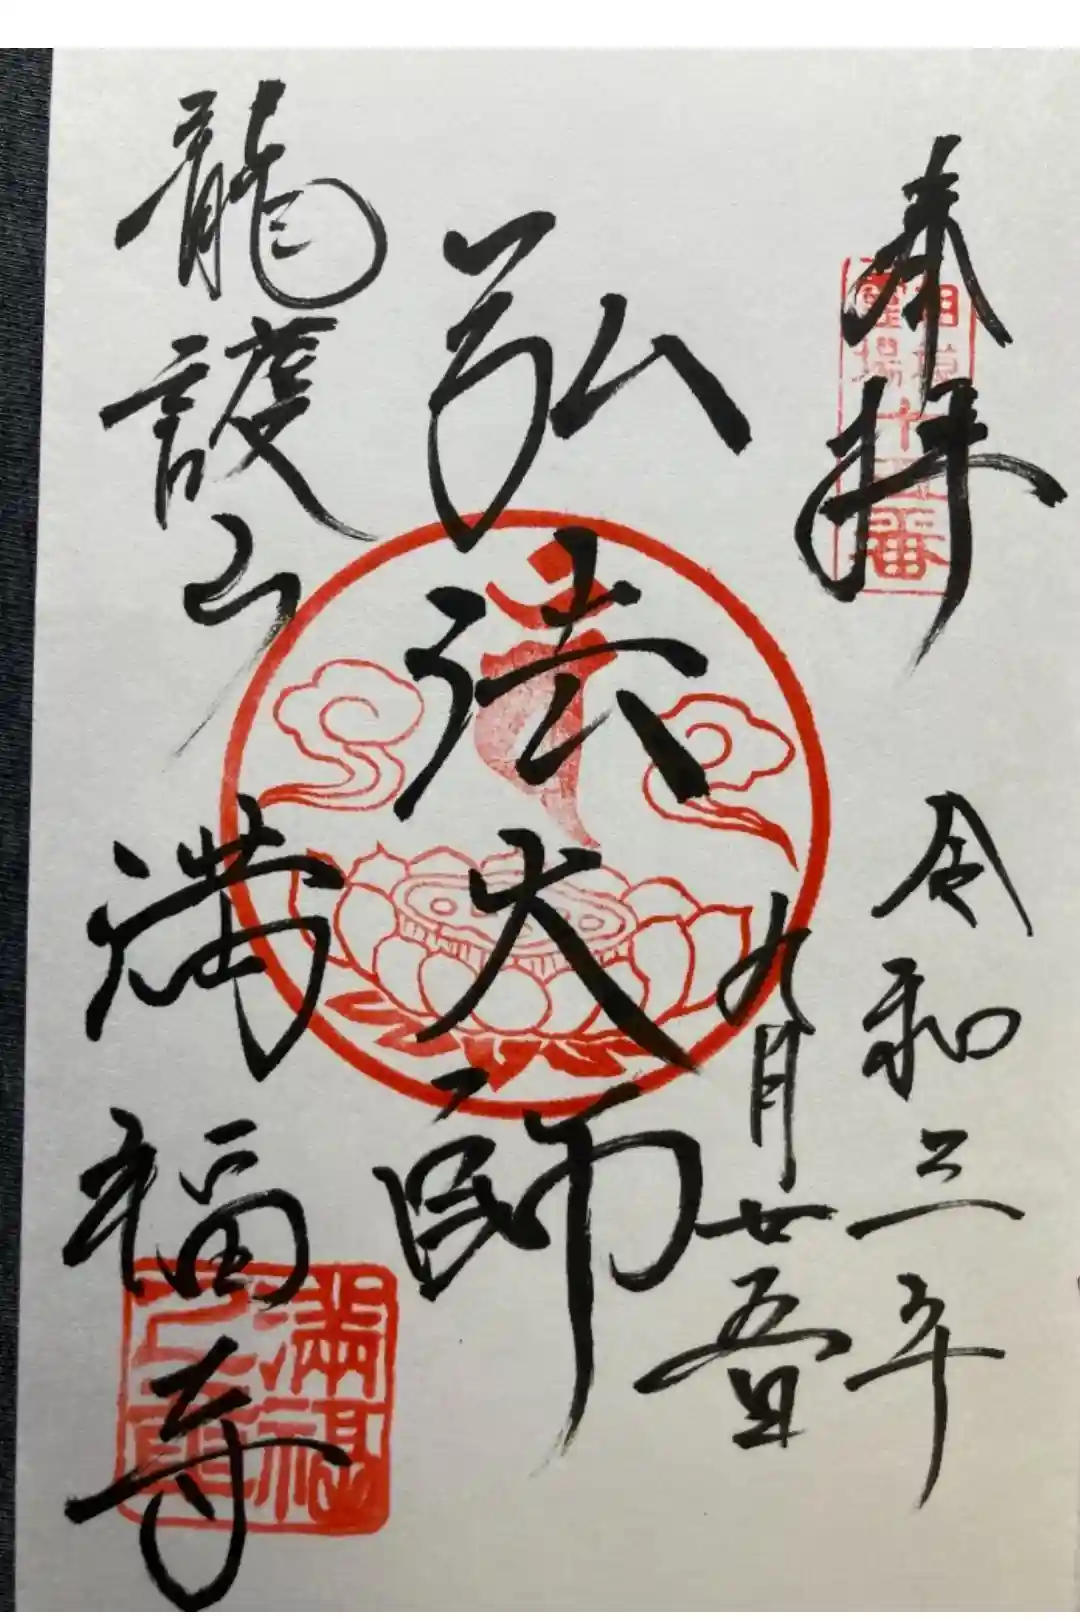 奉拝
令和三年
九月廿五日
弘法大師
龍護山
満福寺
霊場十四番
満福